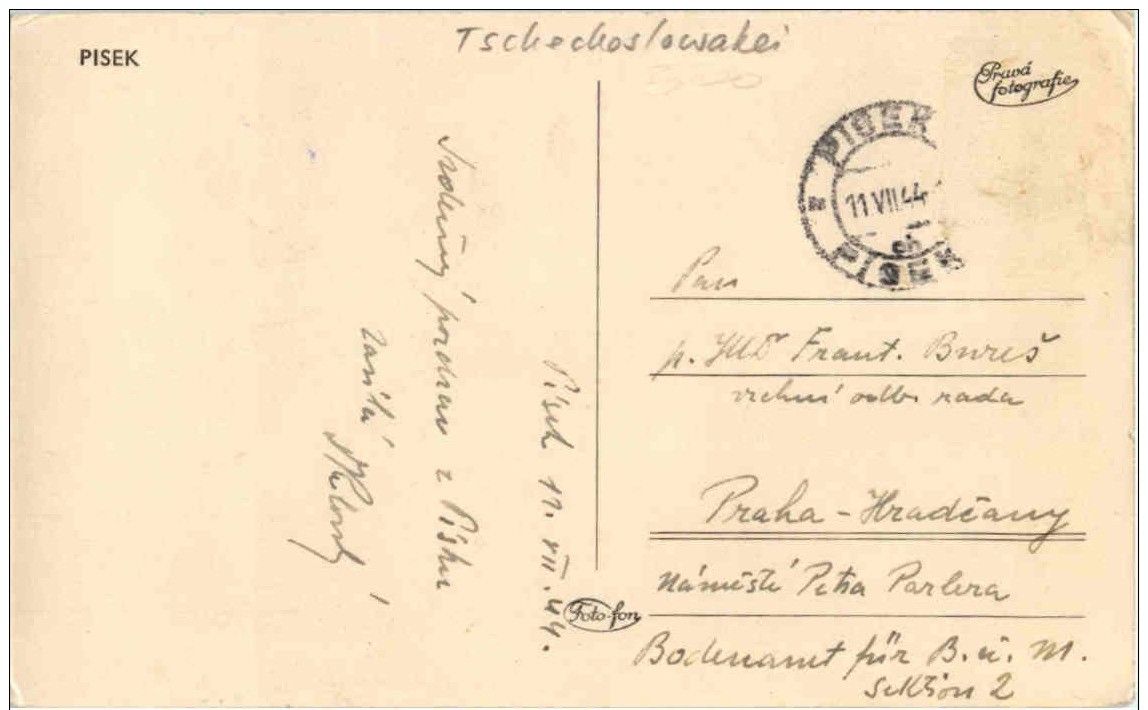 Tschechoslowakei
PISEK
Pravá
fotografie
PISEK
11 VII 44
PISEK
Písek 11. VII. 44.
Srdečný pozdrav z Písku
zasílá
Pan
p. JUD Frant. Bureš
vrchní odb. rada
Praha - Hradčany
Náměstí Petra Parlera
Bodenamt für B. u. M.
Sektion 2
Foto-fon